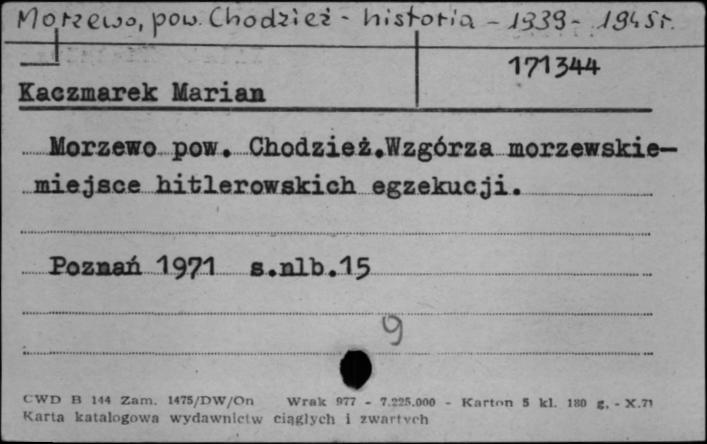 Morzewo, pow. Chodzież - historia - 1939 - 1945 r.
171344
Kaczmarek Marian
Morzewo pow. Chodzież.Wzgórza morzewskie-
miejsce hitlerowskich egzekucji.
Poznań 1971 s.nlb.15
9
CWD B 144 Zam. 1475/DW/On Wrak 977 - 7.225.000 - Karton 5 kl. 180 g. - X.71
Karta katalogowa wydawnictw ciągłych i zwartych